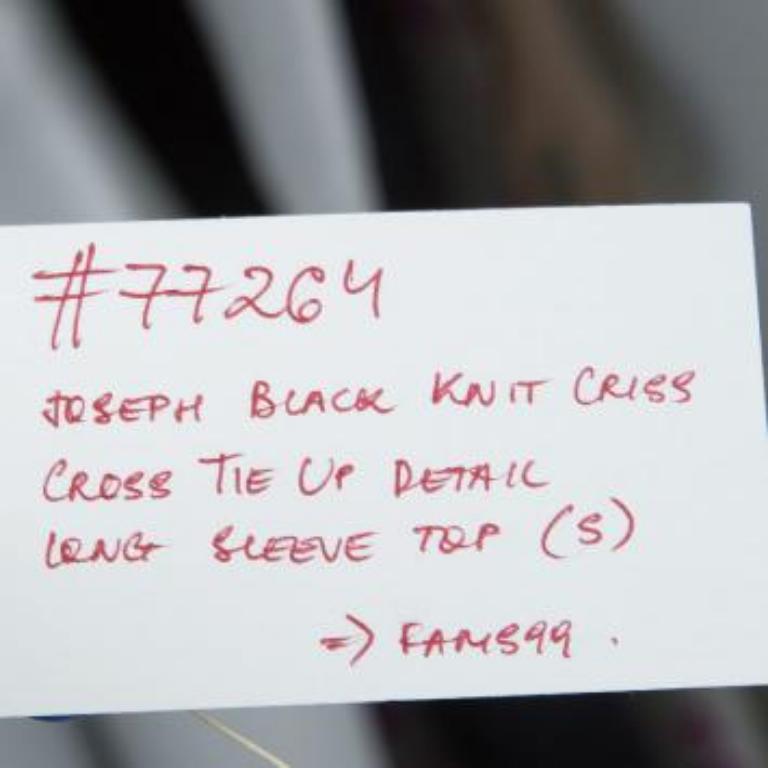 #77264
JOSEPH BLACK KNIT CRISS
CROSS TIE UP DETAIL
LONG SLEEVE TOP (S)
=> FAMS99 .